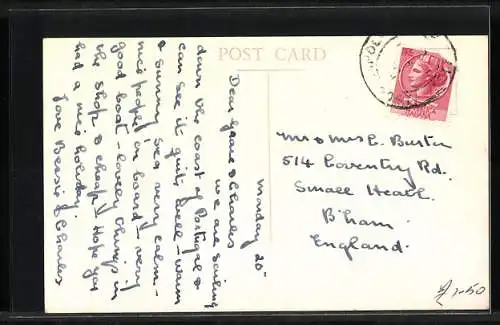 POST CARD
Monday 20"
Dear Grace & Charles
we are sailing
down the coast of Portugal &
can see it quite well - warm
& sunny, sea very calm -
nice people on board - very
good boat - lovely things in
the shop & cheap!! Hope you
had a nice holiday.
Love Bessie & Charles
Mr & Mrs C. Burton
514 Coventry Rd.
Small Heath.
B'ham.
England.